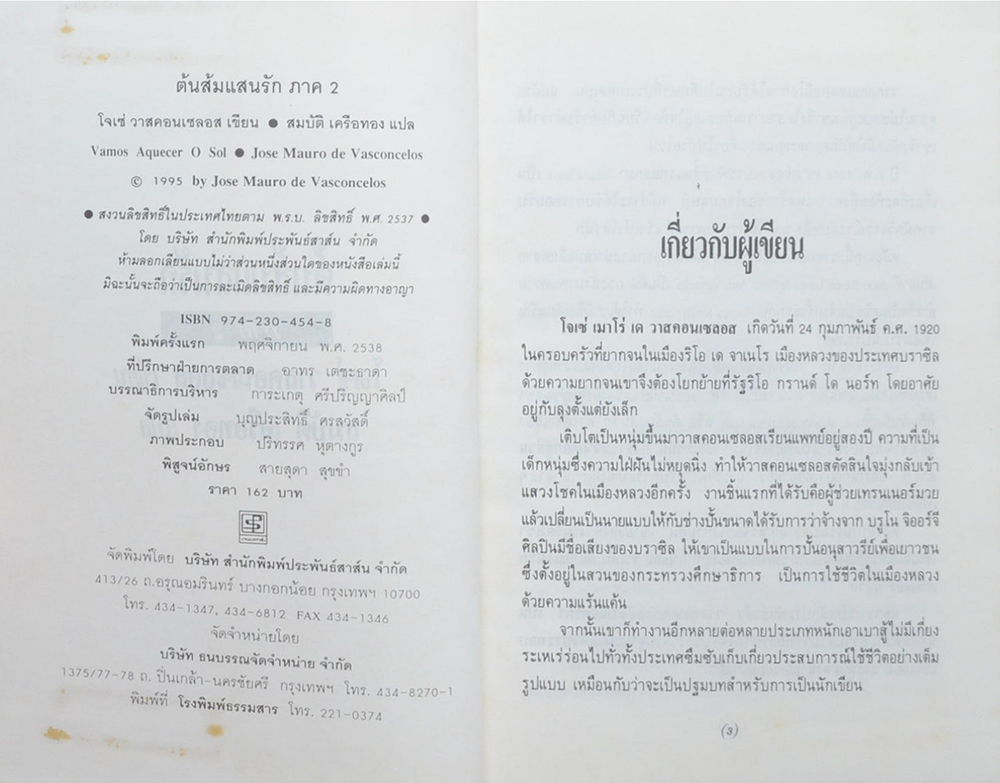 ต้นส้มแสนรัก ภาค 2
โจเซ่ วาสคอนเซลอส เขียน ● สมบัติ เครือทอง แปล
Vamos Aquecer O Sol ● Jose Mauro de Vasconcelos
© 1995 by Jose Mauro de Vasconcelos
● สงวนลิขสิทธิ์ในประเทศไทยตาม พ.ร.บ. ลิขสิทธิ์ พ.ศ. 2537 ●
โดย บริษัท สำนักพิมพ์ประพันธ์สาส์น จำกัด
ห้ามลอกเลียนแบบไม่ว่าส่วนหนึ่งส่วนใดของหนังสือเล่มนี้
มิฉะนั้นจะถือว่าเป็นการละเมิดลิขสิทธิ์ และมีความผิดทางอาญา
ISBN 974-230-454-8
พิมพ์ครั้งแรก พฤศจิกายน พ.ศ. 2538
ที่ปรึกษาฝ่ายการตลาด อาทร เตชะธาดา
บรรณาธิการบริหาร การะเกตุ ศรีปริญญาศิลป์
จัดรูปเล่ม บุญประสิทธิ์ ศรสวัสดิ์
ภาพประกอบ ปริทรรศ หุตางกูร
พิสูจน์อักษร สายสุดา สุขขำ
ราคา 162 บาท
จัดพิมพ์โดย บริษัท สำนักพิมพ์ประพันธ์สาส์น จำกัด
413/26 ถ.อรุณอมรินทร์ บางกอกน้อย กรุงเทพฯ 10700
โทร. 434-1347, 434-6812 FAX 434-1346
จัดจำหน่ายโดย
บริษัท ธนบรรณจัดจำหน่าย จำกัด
1375/77-78 ถ. ปิ่นเกล้า-นครชัยศรี กรุงเทพฯ โทร. 434-8270-1
พิมพ์ที่ โรงพิมพ์ธรรมสาร โทร. 221-0374
เกี่ยวกับผู้เขียน
โจเซ่ เมาโร่ เด วาสคอนเซลอส เกิดวันที่ 24 กุมภาพันธ์ ค.ศ. 1920
ในครอบครัวที่ยากจนในเมืองริโอ เด จาเนโร เมืองหลวงของประเทศบราซิล
ด้วยความยากจนเขาจึงต้องโยกย้ายที่รัฐริโอ กรานด์ โด นอร์ท โดยอาศัย
อยู่กับลุงตั้งแต่ยังเล็ก
เติบโตเป็นหนุ่มขึ้นมาวาสคอนเซลอสเรียนแพทย์อยู่สองปี ความที่เป็น
เด็กหนุ่มซึ่งความใฝ่ฝันไม่หยุดนิ่ง ทำให้วาสคอนเซลอสตัดสินใจมุ่งกลับเข้า
แสวงโชคในเมืองหลวงอีกครั้ง งานชิ้นแรกที่ได้รับคือผู้ช่วยเทรนเนอร์มวย
แล้วเปลี่ยนเป็นนายแบบให้กับช่างปั้นขนาดได้รับการว่าจ้างจาก บรูโน จิออร์จี
ศิลปินมีชื่อเสียงของบราซิล ให้เขาเป็นแบบในการปั้นอนุสาวรีย์เพื่อเยาวชน
ซึ่งตั้งอยู่ในสวนของกระทรวงศึกษาธิการ เป็นการใช้ชีวิตในเมืองหลวง
ด้วยความแร้นแค้น
จากนั้นเขาก็ทำงานอีกหลายต่อหลายประเภทหนักเอาเบาสู้ไม่มีเกี่ยง
ระเหเร่ร่อนไปทั่วทั้งประเทศซึมซับเก็บเกี่ยวประสบการณ์ใช้ชีวิตอย่างเต็ม
รูปแบบ เหมือนกับว่าจะเป็นปฐมบทสำหรับการเป็นนักเขียน
(3)